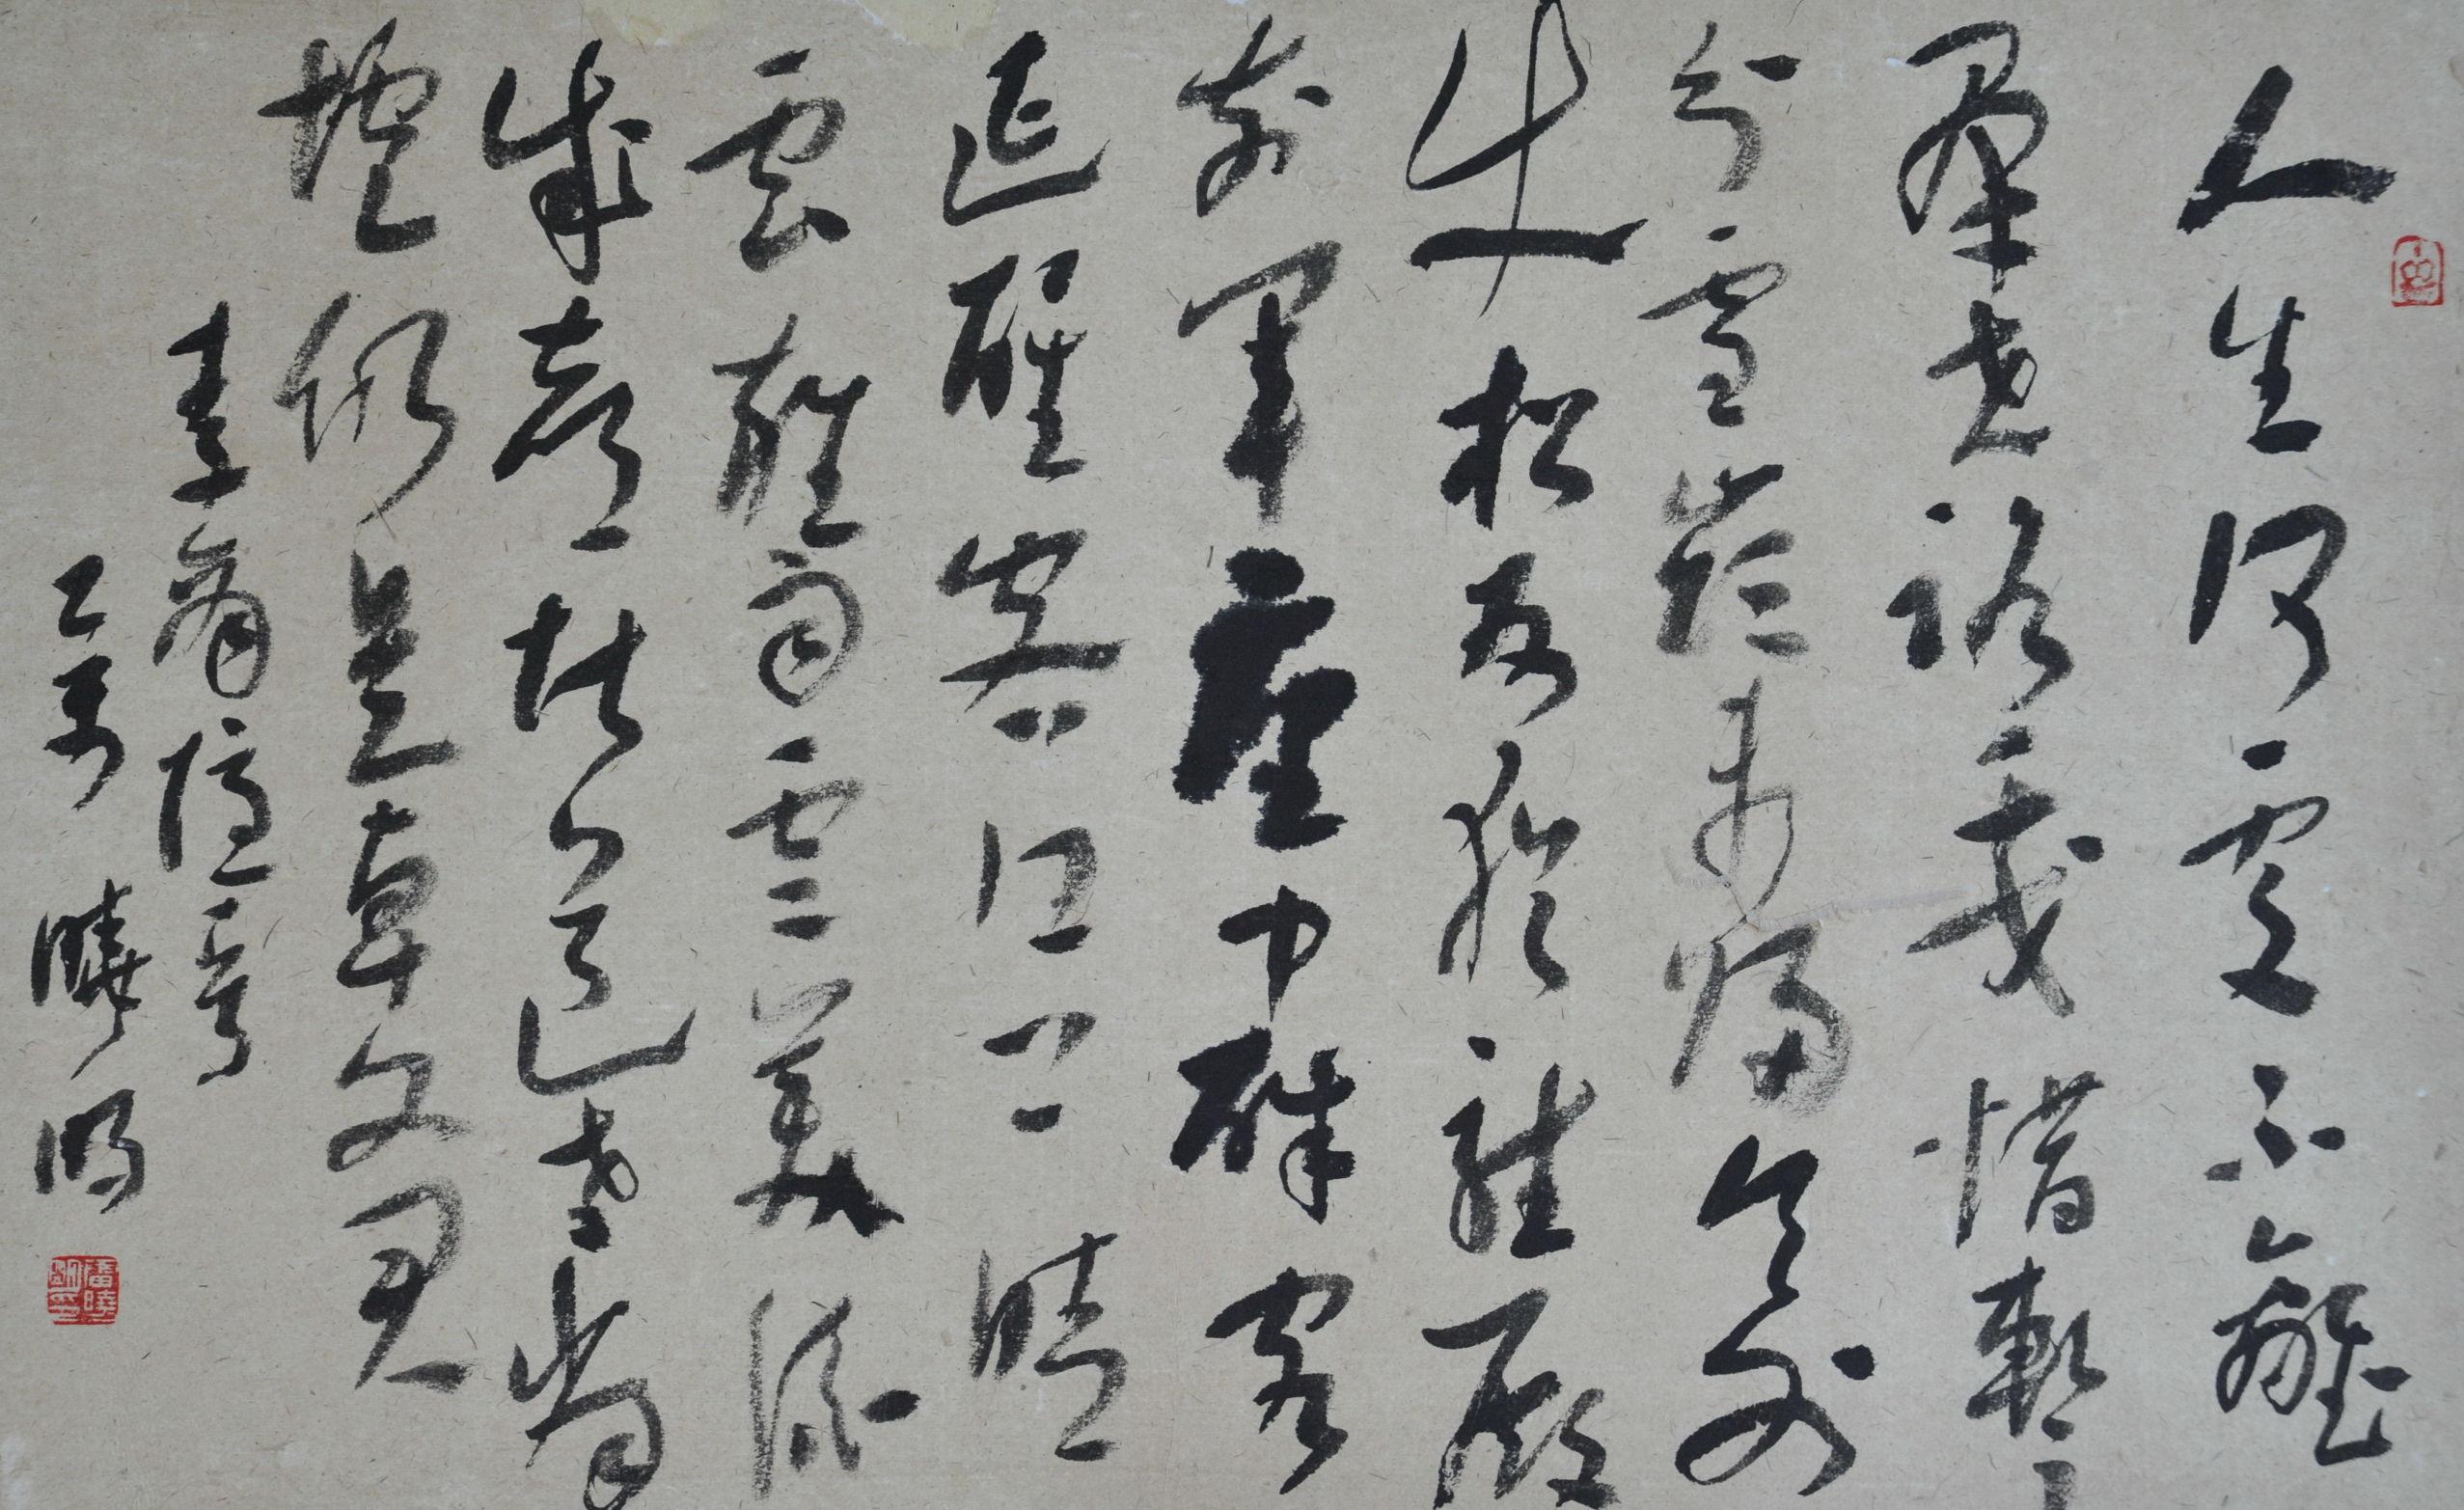 人生何處不離
群世路干戈惜暫
分雪嶺未歸天外
使松州猶駐殿
前軍座中醉客
延醒客江上晴
雲雜雨雲美酒
成都堪送老當
壚仍是卓文君
李商隱
乙 曉明
潘曉明印